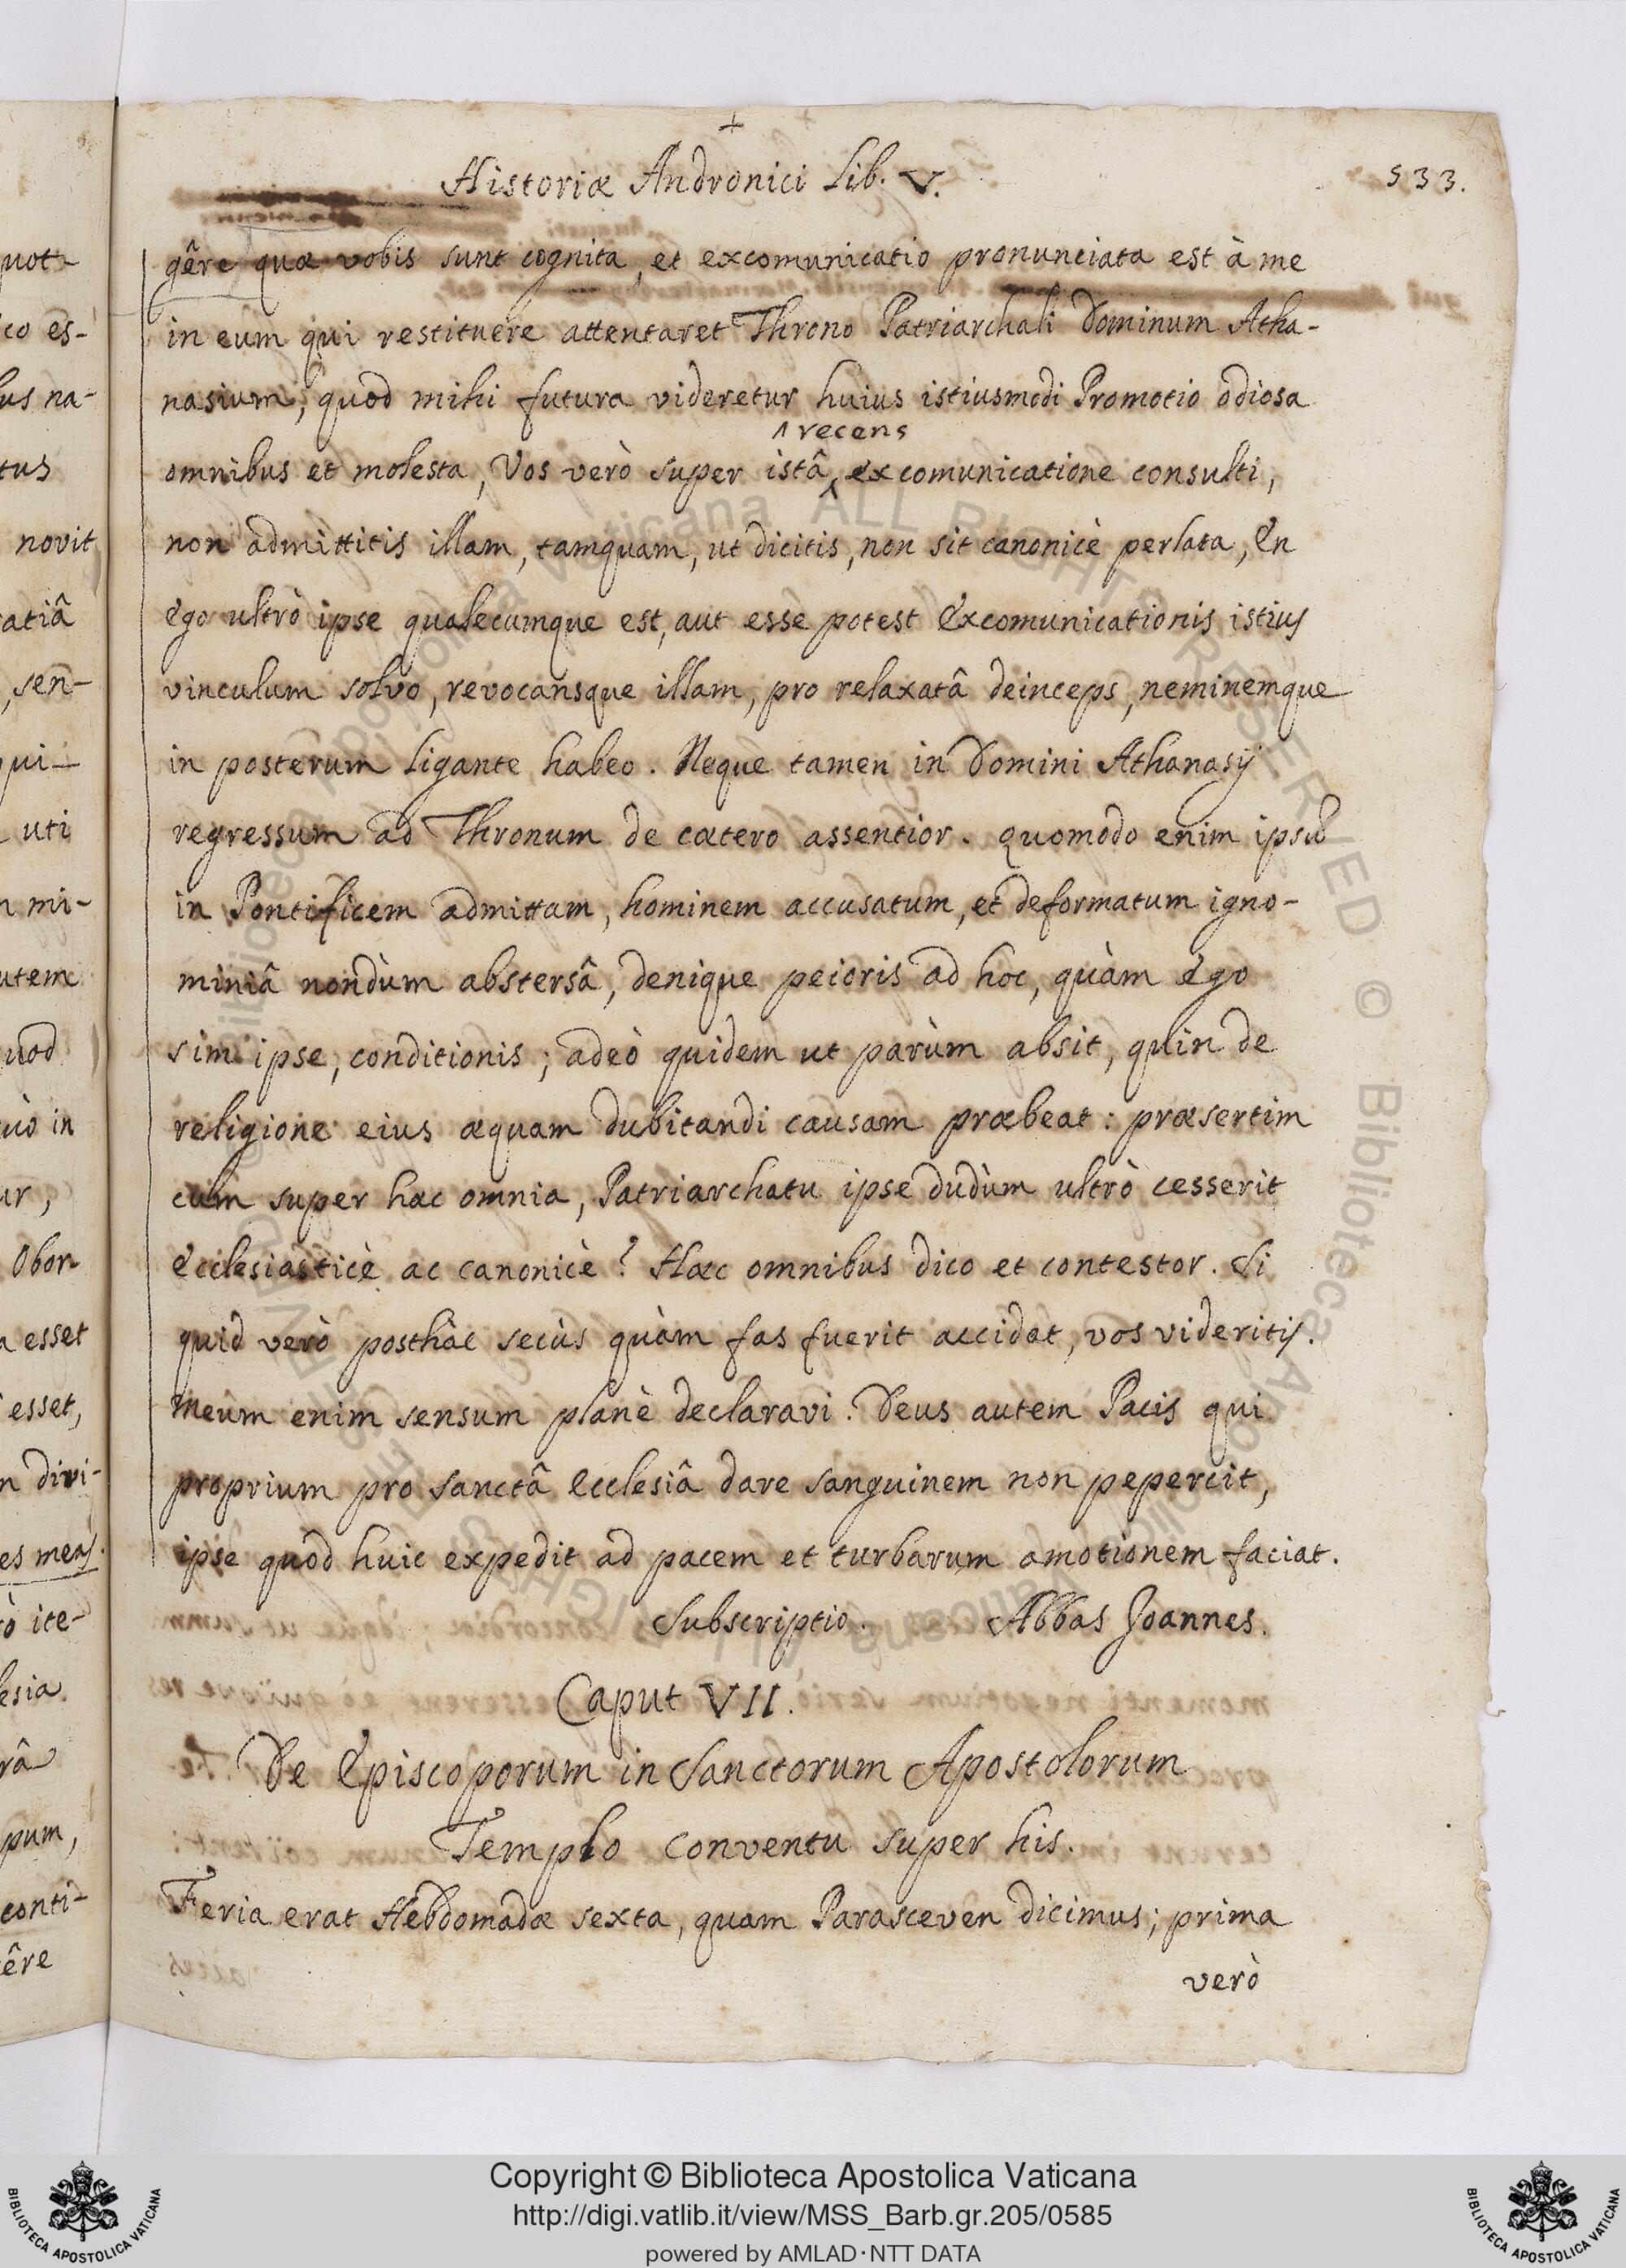 Historiæ Andronici Lib. V.
533.
gêre quæ vobis sunt cognita, et excomunicatio pronunciata est à me
in eum qui restituere attentaret Throno Patriarchali Dominum Atha-
nasium; quod mihi futura videretur huius istiusmodi Promotio odiosa
recens
omnibus et molesta, Vos verò super istâ, excomunicatione consulti,
non admittitis illam, tamquam, ut dicitis, non sit canonicè perlata, En
ego ultrò ipse qualecumque est, aut esse potest excomunicationis istius
vinculum solvo, revocansque illam, pro relaxatâ deinceps, neminemque
in posterum ligante habeo. Neque tamen in Domini Athanasij
regressum ad Thronum de cætero assentior. quomodo enim ipsū
in Pontificem admittam, hominem accusatum, et deformatum igno-
miniâ nondùm abstersâ, denique peioris ad hoc, quàm ego
sim ipse, conditionis; adeò quidem ut parùm absit, quin de
religione eius æquam dubitandi causam præbeat: præsertim
cum super hæc omnia, Patriarchatu ipse dudùm ultrò cesserit
Ecclesiasticè ac canonicè? Hæc omnibus dico et contestor. Si
quid verò posthàc secùs quàm fas fuerit accidat, vos videritis.
Meum enim sensum planè declaravi. Deus autem Pacis qui
proprium pro sanctâ Ecclesiâ dare sanguinem non pepercit,
ipse quod huic expedit ad pacem et turbarum amotionem faciat.
Subscriptio. Abbas Joannes.
Caput VII.
De Episcoporum in Sanctorum Apostolorum
Templo conventu super his.
Feria erat Hebdomadæ sexta, quam Parasceven dicimus; prima
verò
quot-
co es-
us na-
tus
novit
atiâ
, sen-
qui-
uti
mi-
utem
uod
uò in
ur,
Obor-
a esset
esset,
n divi-
es meas.
ò ite-
lesia
râ
pum,
conti-
êre
© Biblioteca Apostolica Vaticana ALL RIGHTS RESERVED © Biblioteca Apostolica Vaticana ALL RIGHTS RESERVED
Copyright © Biblioteca Apostolica Vaticana
http://digi.vatlib.it/view/MSS_Barb.gr.205/0585
powered by AMLAD·NTT DATA
BIBLIOTECA APOSTOLICA VATICANA
BIBLIOTECA APOSTOLICA VATICANA